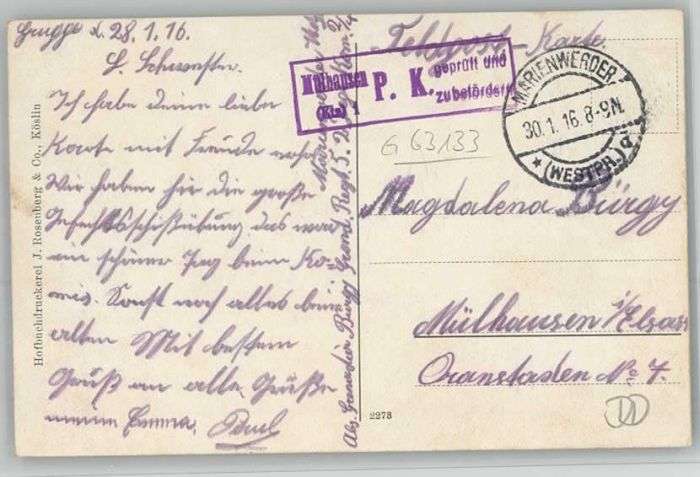 Gruppe d. 28.1.16.
L. Schwester.
Ich habe deine liebe
Karte mit Freude
Wir haben hir die große
Gefechtsschißübung, das war
ein schöner Tag beim Ko-
mis. Sonst noch alles beim
alten Mit bestem
Gruß an alle. Grüße
meine Emma. Paul
Hofbuchdruckerei J. Rosenberg & Co., Köslin
Abs. Grenadier Bürgy Grend. Regt. 5.
2273
Feldpost-Karte.
Mülhausen
(Els) 1
P. K.
geprüft und
zu befördern
MARIENWERDER
30.1.16.8-9N.
* (WESTPR.) a
G 63133
Magdalena Bürgy
Mülhausen i/Elsaß
Oranstaden No 7.